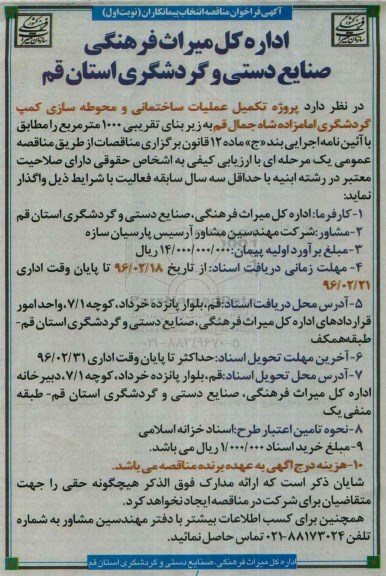 آگهی فراخوان مناقصه انتخاب پیمانکاران (نوبت اول)
اداره کل میراث فرهنگی
صنایع دستی و گردشگری استان قم
در نظر دارد پروژه تکمیل عملیات ساختمانی و محوطه سازی کمپ
گردشگری امامزاده شاه جمال قم به زیر بنای تقریبی ۱۰۰۰ مترمربع را مطابق
با آئین نامه اجرایی بند «ج» ماده ۱۲ قانون برگزاری مناقصات از طریق مناقصه
عمومی یک مرحله ای با ارزیابی کیفی به اشخاص حقوقی دارای صلاحیت
معتبر در رشته ابنیه با حداقل سه سال سابقه فعالیت با شرایط ذیل واگذار
نماید:
۱- کارفرما: اداره کل میراث فرهنگی، صنایع دستی و گردشگری استان قم
۲- مشاور: شرکت مهندسین مشاور آرسیس پارسیان سازه
۳- مبلغ برآورد اولیه پیمان: ۱۴/۰۰۰/۰۰۰/۰۰۰ ریال
۴- مهلت زمانی دریافت اسناد: از تاریخ ۹۶/۰۲/۱۸ تا پایان وقت اداری
۹۶/۰۲/۲۱
۵- آدرس محل دریافت اسناد: قم، بلوار پانزده خرداد، کوچه ۷/۱، واحد امور
قراردادهای اداره کل میراث فرهنگی، صنایع دستی و گردشگری استان قم-
طبقه همکف
۶- آخرین مهلت تحویل اسناد: حداکثر تا پایان وقت اداری ۹۶/۰۲/۳۱
۷- آدرس محل تحویل اسناد: قم، بلوار پانزده خرداد، کوچه ۷/۱، دبیرخانه
اداره کل میراث فرهنگی، صنایع دستی و گردشگری استان قم- طبقه
منفی یک
۸- نحوه تامین اعتبار طرح: اسناد خزانه اسلامی
۹- مبلغ خرید اسناد ۱/۰۰۰/۰۰۰ ریال می باشد.
۱۰- هزینه درج آگهی به عهده برنده مناقصه می باشد.
شایان ذکر است که ارائه مدارک فوق الذکر هیچگونه حقی را جهت
متقاضیان برای شرکت در مناقصه ایجاد نخواهد کرد.
همچنین برای کسب اطلاعات بیشتر با دفتر مهندسین مشاور به شماره
تلفن ۸۸۱۷۳۰۲۴-۰۲۱ تماس حاصل نمائید.
اداره کل میراث فرهنگی، صنایع دستی و گردشگری استان قم